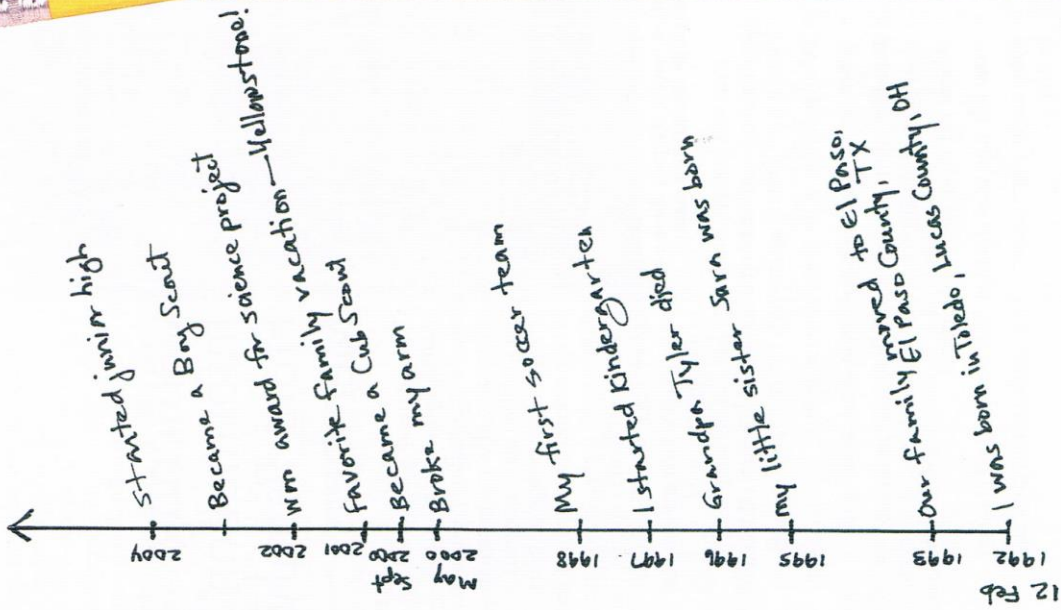 2004 started junior high
Became a Boy Scout
2002 won award for science project
2001 favorite family vacation—Yellowstone!
Sept 2000 Became a Cub Scout
May 2000 Broke my arm
1998 My first soccer team
1997 I started kindergarten
1996 Grandpa Tyler died
1995 my little sister Sara was born
1993 Our family moved to El Paso,
El Paso County, TX
12 Feb 1992 I was born in Toledo, Lucas County, OH